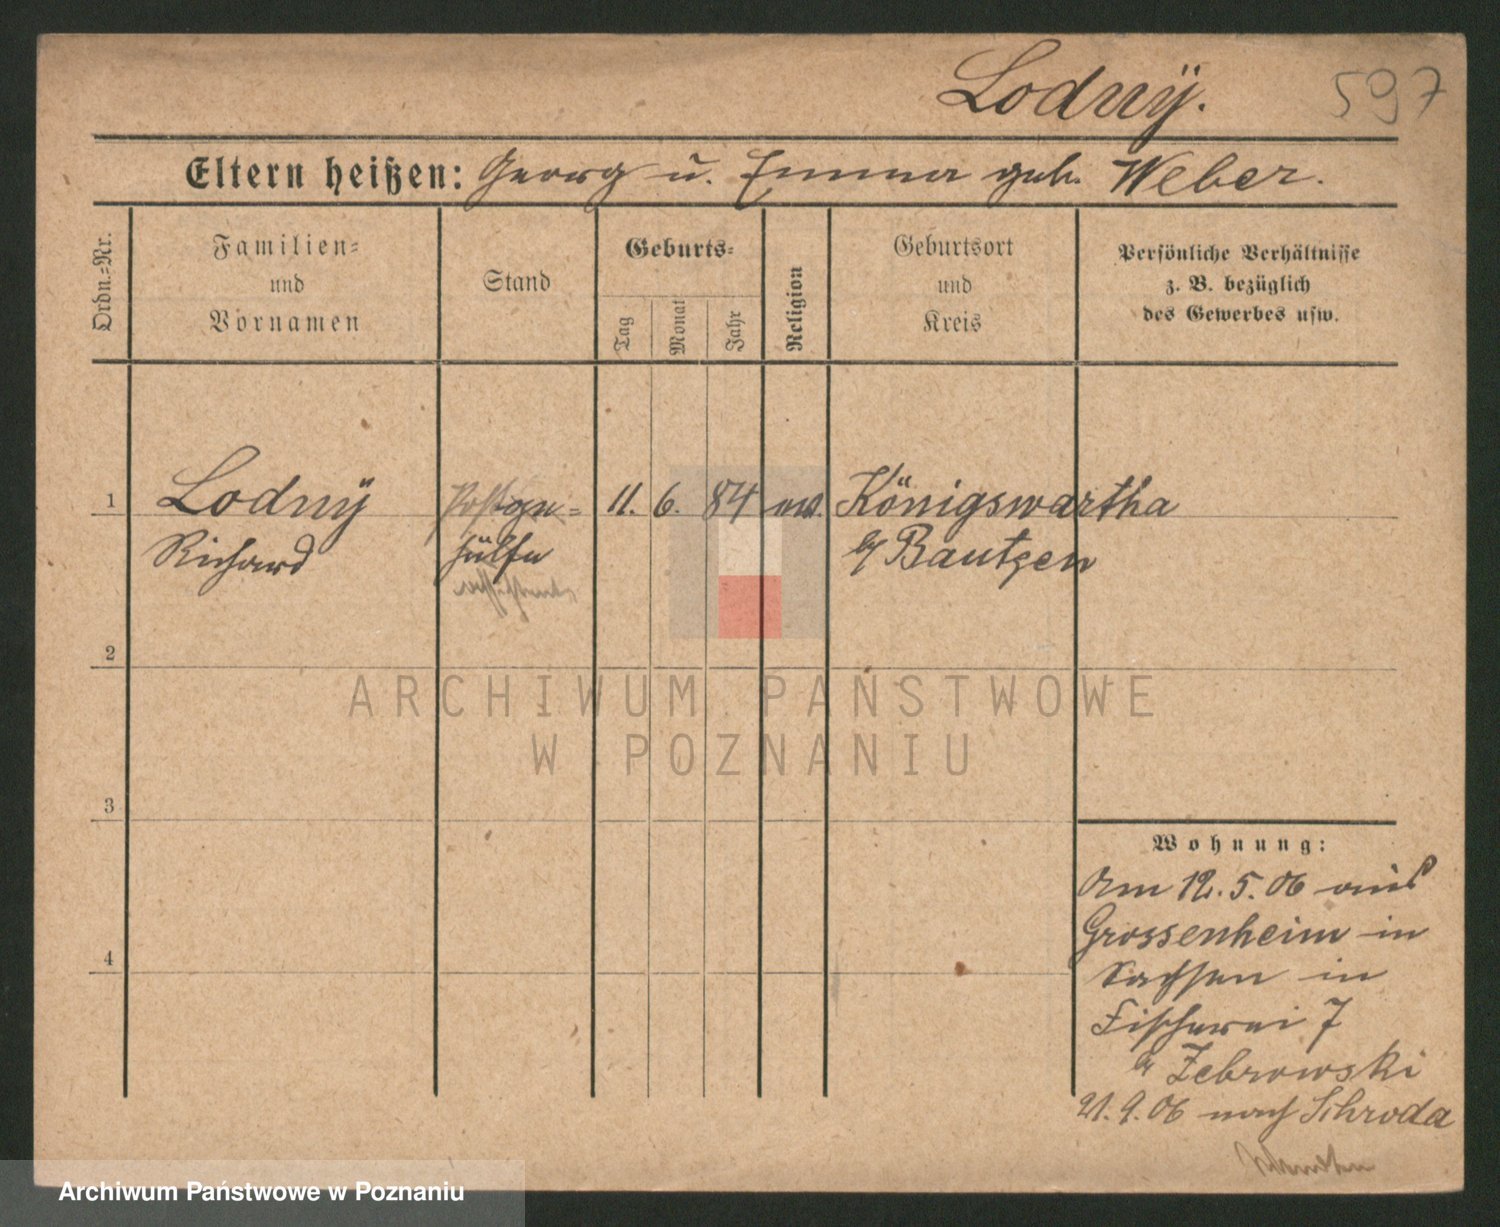 Lodnÿ. 597
Eltern heißen: Georg u. Emma geb. Weber.
Ordn.=Nr.
Familien=
und
Vornamen
Stand
Geburts=
Tag
Monat
Jahr
Religion
Geburtsort
und
Kreis
Persönliche Verhältnisse
z. B. bezüglich
des Gewerbes usw.
1 Lodnÿ 11. 6. 84 Königswartha
Richard b/ Bautzen
2
3
4
Wohnung:
Am 12. 5. 06 aus
Grossenheim in
Sachsen in
Fischerei 7
b/ Zebrowski
21. 9. 06 nach Schroda
ARCHIWUM PAŃSTWOWE
W POZNANIU
Archiwum Państwowe w Poznaniu